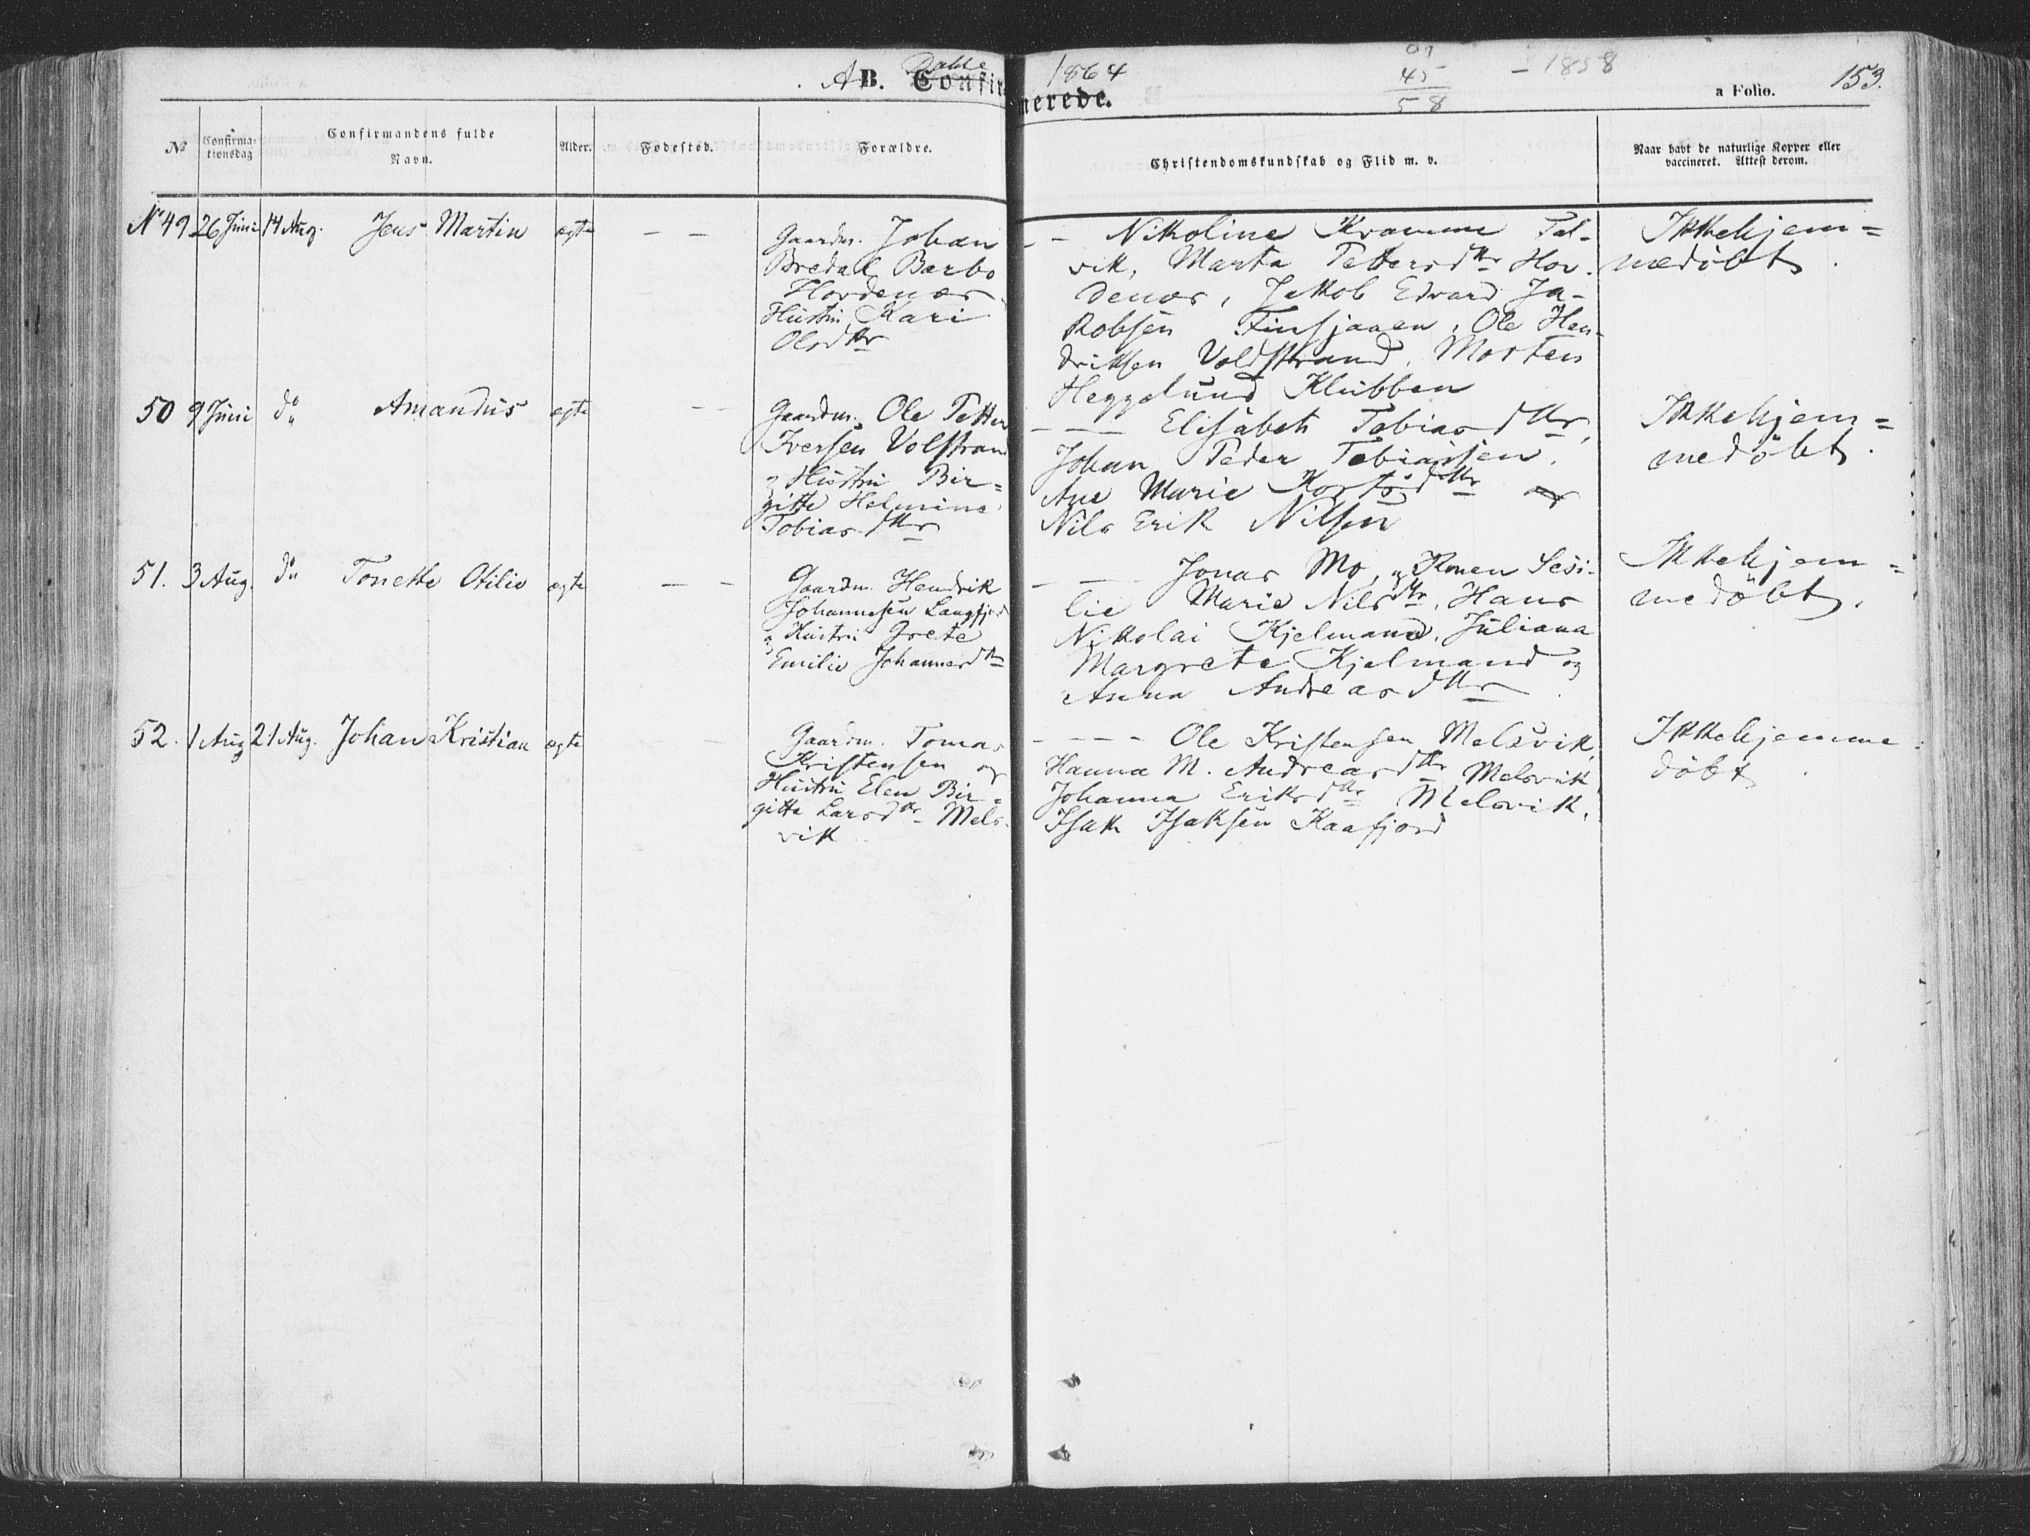 AB. Døbte Confirmerede. 1864
45
58
1858
a Folio. 153.
No
Confirmationsdag
Confirmandens fulde
Navn.
Alder.
Fødested.
Forældre.
Christendomskundskab og Flid m. v.
Naar havt de naturlige Kopper eller
vaccineret. Attest derom.
No 49 26 Juni 14 Aug. Jens Martin ægte — —
Gaardm. Johan
Bredal Barbo
Hordenæs
Hustru Kari
Olsdttr
— — Nikoline Kramme Tal-
vik, Marta Pettersdttr Hor-
denæs, Jakob Edvard Ja-
kobsen Finsjaaen, Ole Hen-
driksen Voldstrand, Morten
Heggelund Klubben
Ikkehjem=
medøbt.
50 9 Juni do Amandus ægte — —
Gaardm. Ole Petter
Iversen Volstran
og Hustru Bir=
gitte Helmine
Tobiasdttr
— — Elisabeth Tobiasdttr,
Johan Peder Tobiassen,
Ane Marie Kortsdttr og
Nils Erik Nilsen
Ikkehjem=
medöbt.
51. 3 Aug. do Tonette Otilie ægte — —
Gaardm. Hendrik
Johannesen Langfjord
og Hustru Grete
Emilie Johannesdttr
— — Jonas Mo, og Konen Sesi-
lie Marie Nilsdttr, Hans
Nikolai Kjelmand, Juliana
Margrete Kjelmand og
Anna Andreasdttr.
Ikkehjem=
medöbt.
52. 1 Aug 21 Aug. Johan Kristian ægte —
Gaardm. Tomas
Kristensen og
Hustru Elen Bir=
gitte Larsdttr Mels-
vik
— — — Ole Kristensen Melsvik,
Hanna M. Andreasdttr Melsvik
Johanna Eriksdttr Melsvik,
Isak Isaksen Kaafjord
Ikkehjemme=
döbt.